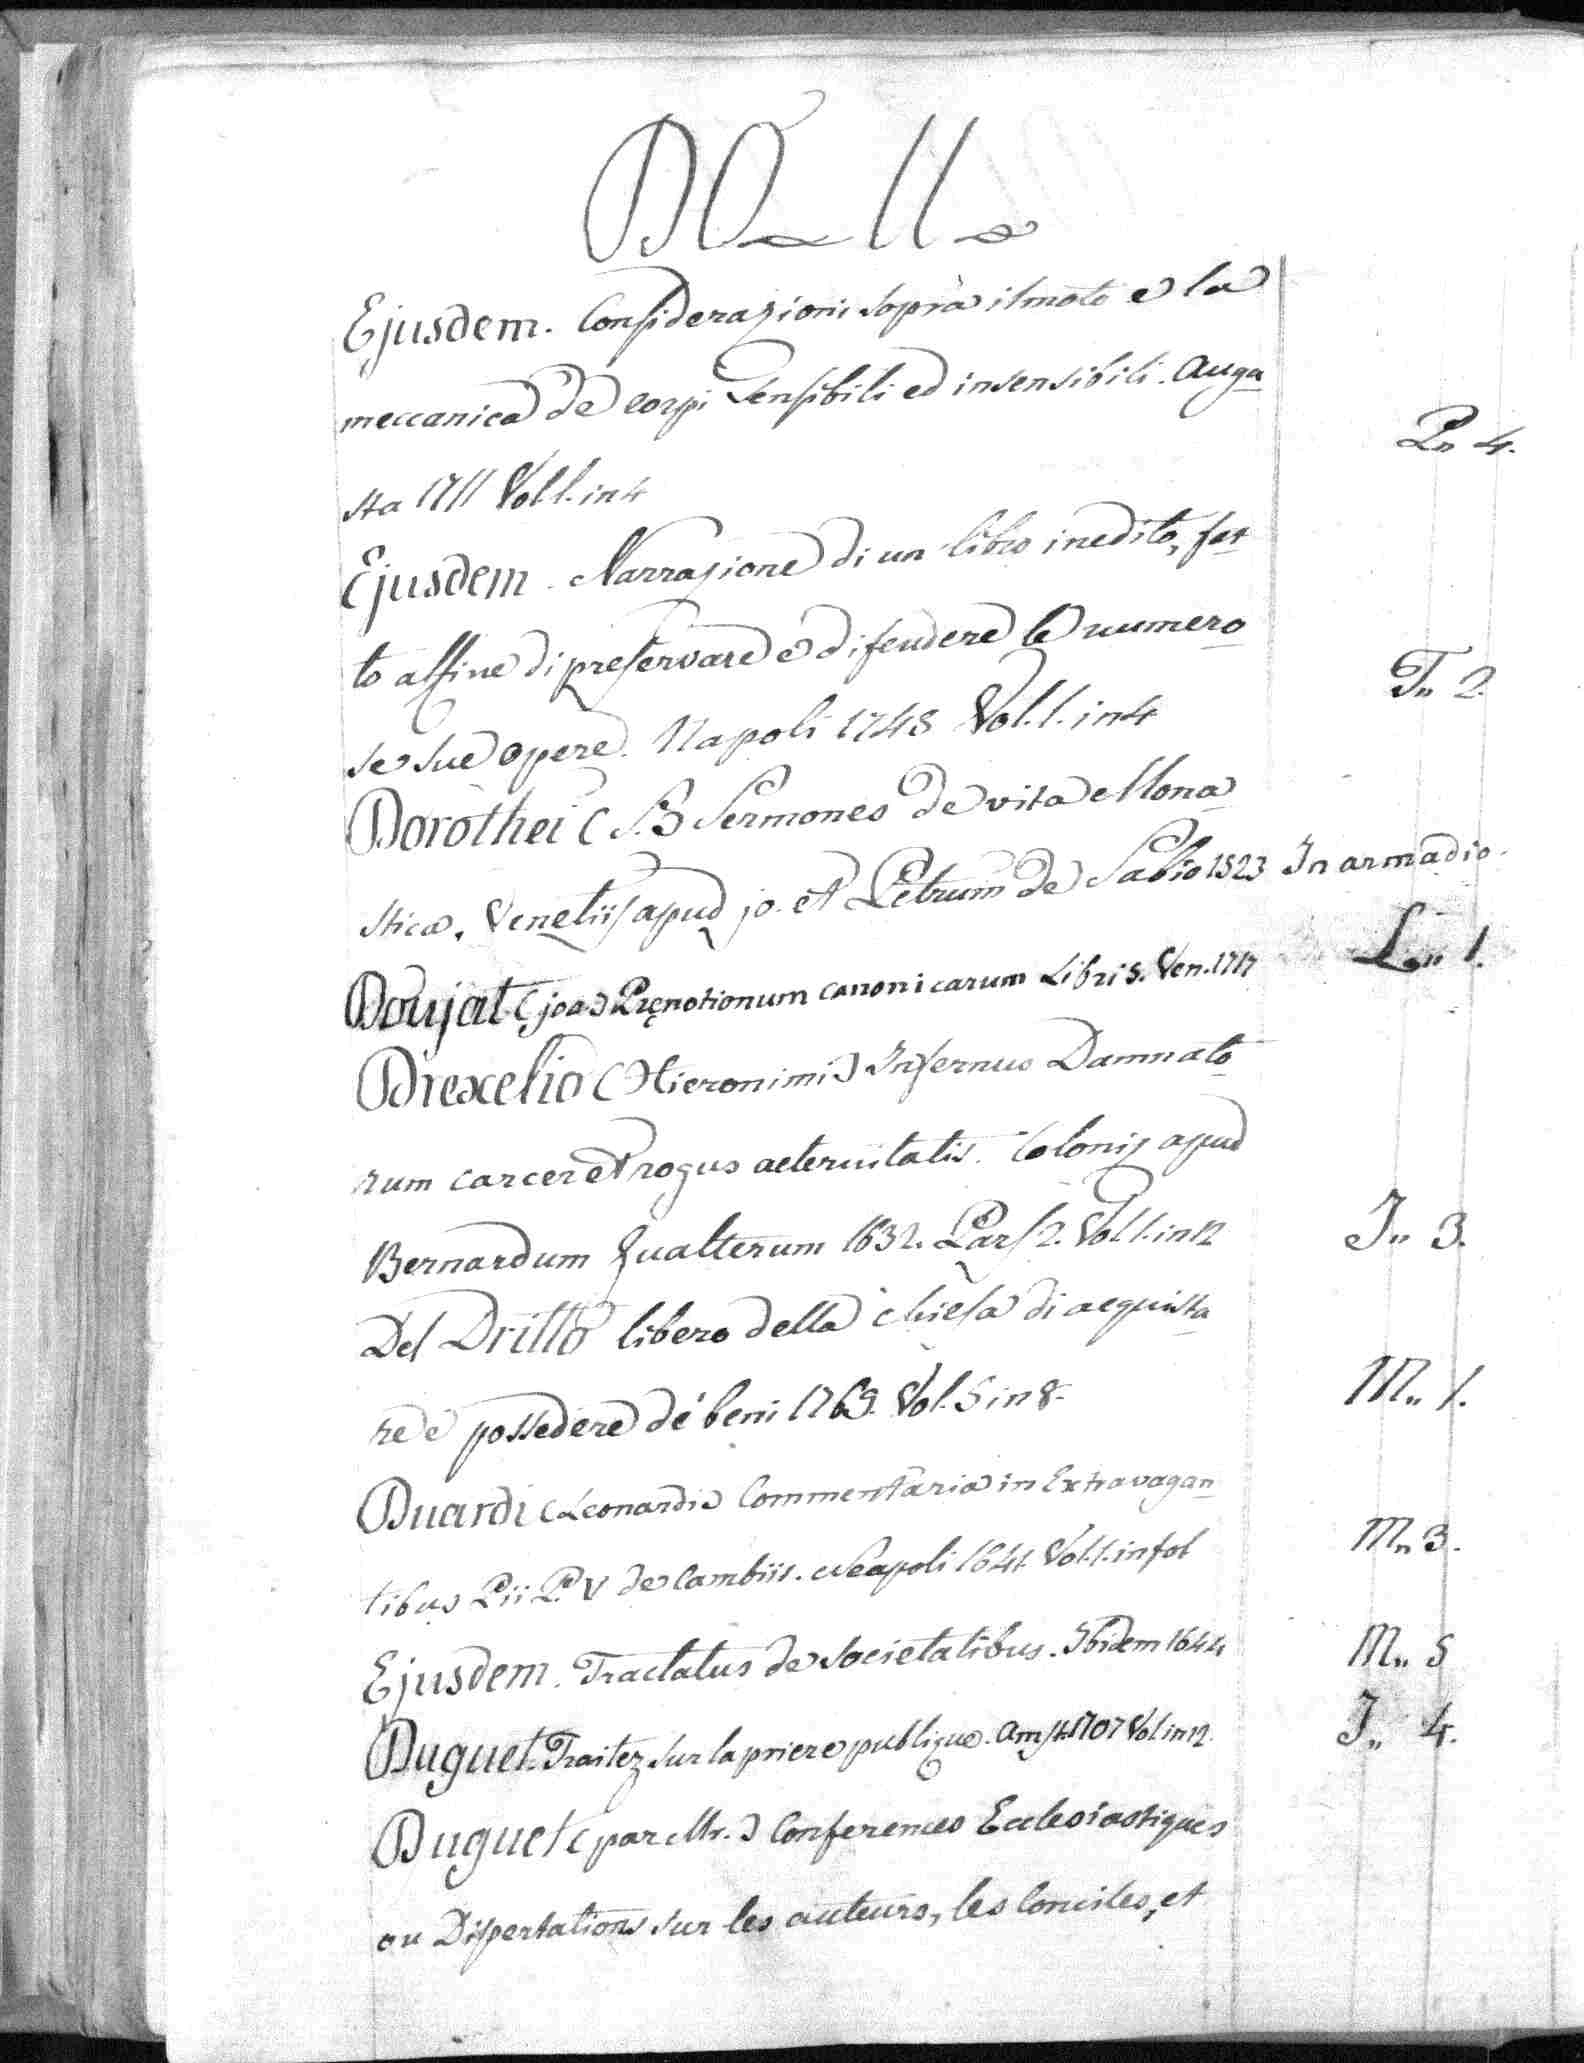 DO
Ejusdem. Considerazioni sopra il moto e la
meccanica de corpi sensibili ed insensibili. Augu
sta 1711 Vol. 1. in 4 P„ 4.
Ejusdem. Narrazione di un libro inedito, fat
to affine di preservare e difendere le numero
se sue opere. Napoli 1748 Vol. 1. in 4 T„ 2.
Dorothei (S.) Sermones de vita Mona
stica. Venetiis apud jo. et Petrum de Sabio 1523 In armadio.
Doujat (joa:) Pręnotionum canonicarum Libri 5. Ven. 1717 L„ 1.
Drexelio (Hieronimi) Infernus Damnato
rum carcer et rogus aeternitatis. Colonię apud
Bernardum Gualterum 1632. Pars 2. Vol 1. in 12 I„ 3.
Del Dritto libero della chiesa di acquista
re e possedere de' beni 1769. Vol. 5 in 8. M„ 1.
Duardi (Leonardi) Commentaria in Extravagan
tibus Pii P. V de Cambiis. Neapoli 1641. Vol. 1. in fol M„ 3.
Ejusdem. Tractatus de Societatibus. Ibidem 1644 M„ 5
Duguet. Traitez sur la priere publique. Amst. 1707 Vol in 12. I„ 4.
Duguet (par Mr.) Conferences Ecclesiastiques
ou Dissertations sur les auteurs, les Conciles, et